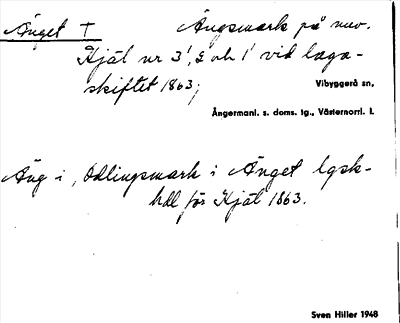 Änget † Ängsmark på nuv.
Hjät nr 3', 2 och 1' vid laga-
skiftet 1863;
Vibyggerå sn,
Ångermanl. s. doms. tg., Västernorrl. l.
Äng i, Odlingsmark i Änget lgsk-
hdl för Hjät 1863.
Sven Hiller 1948